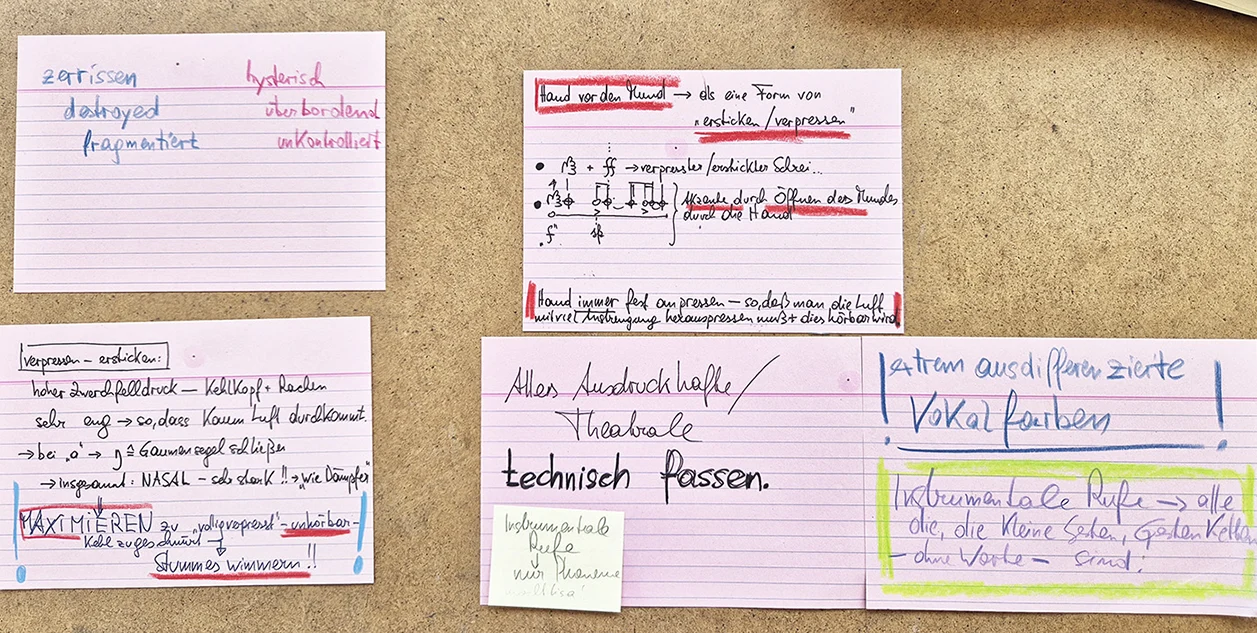 zerrissen
destroyed
fragmentiert
hysterisch
überbordend
unkontrolliert
Hand vor den Mund → als eine Form von
„ersticken/verpressen"
+ ff → verpresster/erstickter Schrei...
Akzente durch Öffnen des Mundes
durch die Hand
„f" sfz
Hand immer fest anpressen – so, daß man die Luft
mit viel Anstrengung herauspressen muß + dies hörbar wird
verpressen – ersticken:
hoher Zwerchfelldruck – Kehlkopf + Rachen
sehr eng → so, dass kaum Luft durchkommt.
→ bei „a" → Gaumensegel schließen
→ insgesamt: NASAL – sehr stark!! → „wie Dämpfer"
MAXIMIEREN zu „völlig verpresst" – unhörbar –
Kehle zugeschnürt →
Stummes wimmern!!
Alles Ausdruckhafte/
Theatrale
technisch fassen.
Instrumentale
Rufe
nur Phoneme
extrem ausdifferenzierte
Vokalfarben
Instrumentale Rufe → alle
die, die kleine Gesten, Gesten Ketten
– ohne Worte – sind!